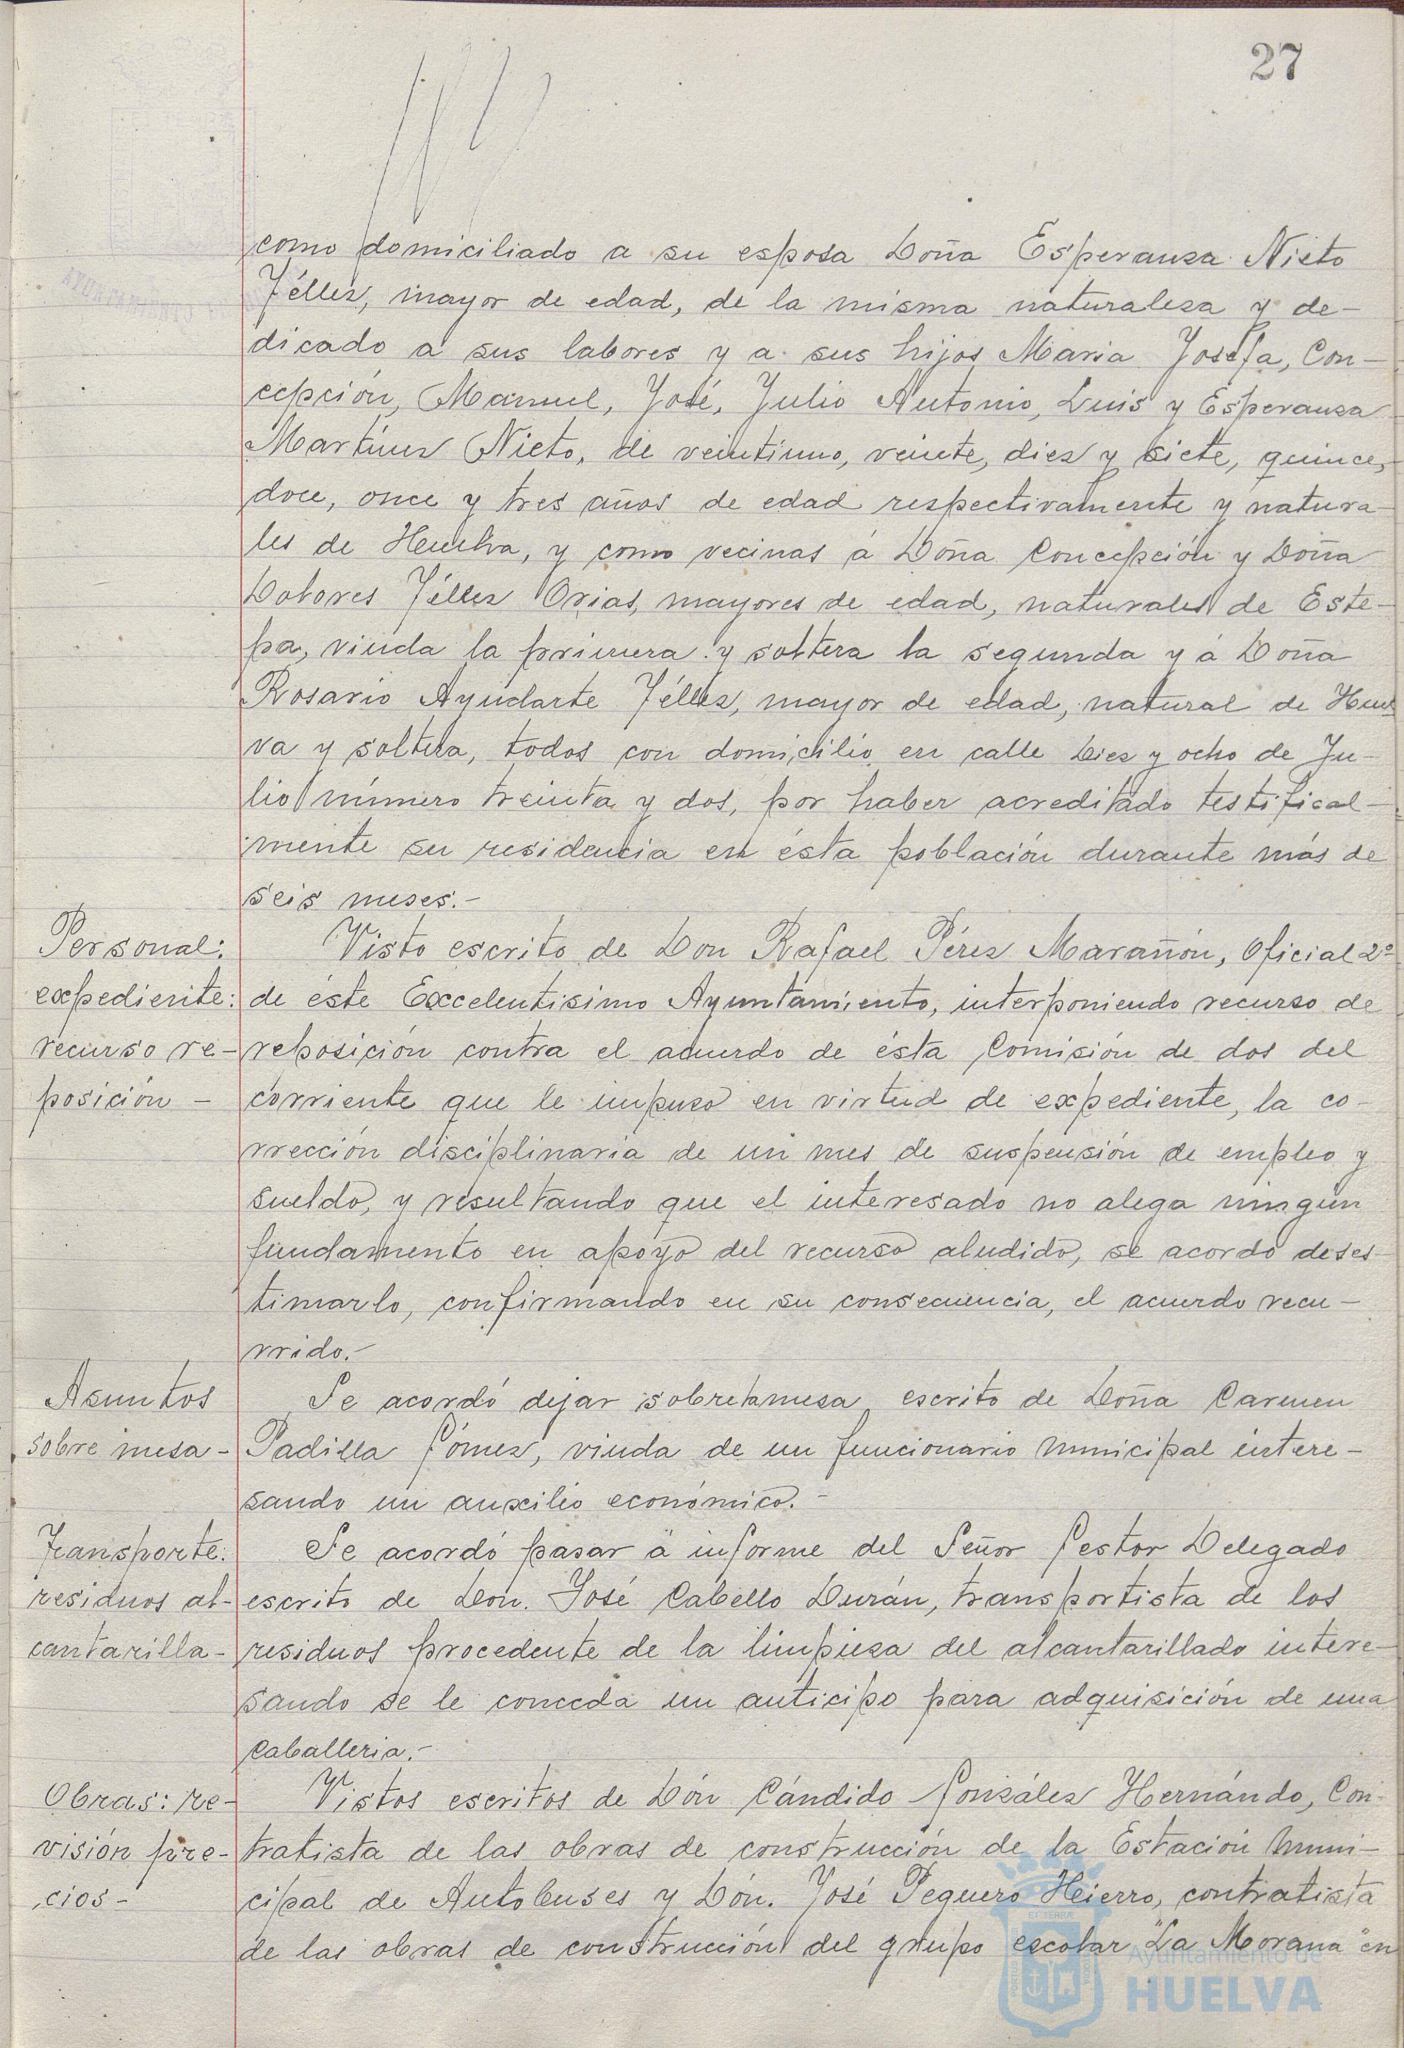 27
como domiciliado a su esposa Doña Esperanza Nieto
Téllez, mayor de edad, de la misma naturaleza y de-
dicado a sus labores y a sus hijos Maria Josefa, Con-
cepción, Manuel, José, Julio Antonio, Luis y Esperanza
Martínez Nieto, de veintiuno, veinte, diez y siete, quince,
doce, once y tres años de edad respectivamente y natura-
les de Huelva, y como vecinas á Doña Concepción y Doña
Dolores Téllez Orias, mayores de edad, naturales de Este-
pa, viuda la primera y soltera la segunda y á Doña
Rosario Ayudarte Téllez, mayor de edad, natural de Huel
va y soltera, todos con domicilio en calle Diez y ocho de Ju-
lio número treinta y dos, por haber acreditado testifical-
mente su residencia en ésta población durante más de
seis meses.-
Personal:
expediente:
recurso re-
posición -
Visto escrito de Don Rafael Pérez Marañón, Oficial 2º
de éste Excelentisimo Ayuntamiento, interponiendo recurso de
reposición contra el acuerdo de ésta Comisión de dos del
corriente que le impuso en virtud de expediente, la co-
rrección disciplinaria de un mes de suspensión de empleo y
sueldo, y resultando que el interesado no alega ningún
fundamento en apoyo del recurso aludido, se acordo deses-
timarlo, confirmando en su consecuencia, el acuerdo recu-
rrido.-
Asuntos
sobre mesa -
Se acordó dejar sobre la mesa escrito de Doña Carmen
Padilla Gómez, viuda de un funcionario municipal intere-
sando un auxilio económico.-
Transporte:
residuos al-
cantarilla-
Se acordó pasar á informe del Señor Gestor Delegado
escrito de Don. José Cabello Durán, transportista de los
residuos procedente de la limpieza del alcantarillado intere-
sando se le conceda un anticipo para adquisición de una
caballeria.-
Obras: re-
visión pre-
cios-
Vistos escritos de Dón Cándido González Hernándo, Con-
tratista de las obras de construcción de la Estación Muni-
cipal de Autobuses y Dón. José Peguero Hierro, contratista
de las obras de construcción del grupo escolar "La Morana" en
Ayuntamiento de
HUELVA